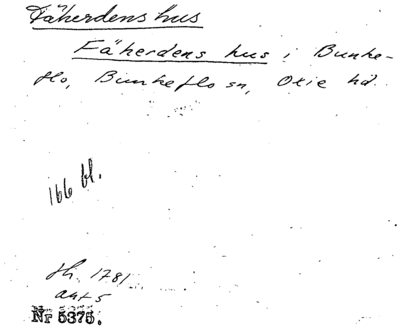 Fäherdens hus
Fäherdens hus i Bunke-
flo, Bunkeflo sn, Oxie hd.
166 bl.
1781
ant 5
Nr 5375.